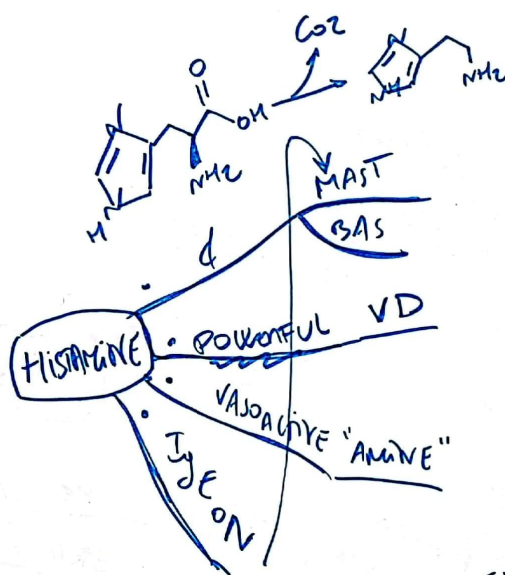 CO2
N
NH
NH2
O
OH
N
NH2
N
H
MAST
BAS
¢
HISTAMINE
POWERFUL VD
VASOACTIVE "AMINE"
IgE
ON